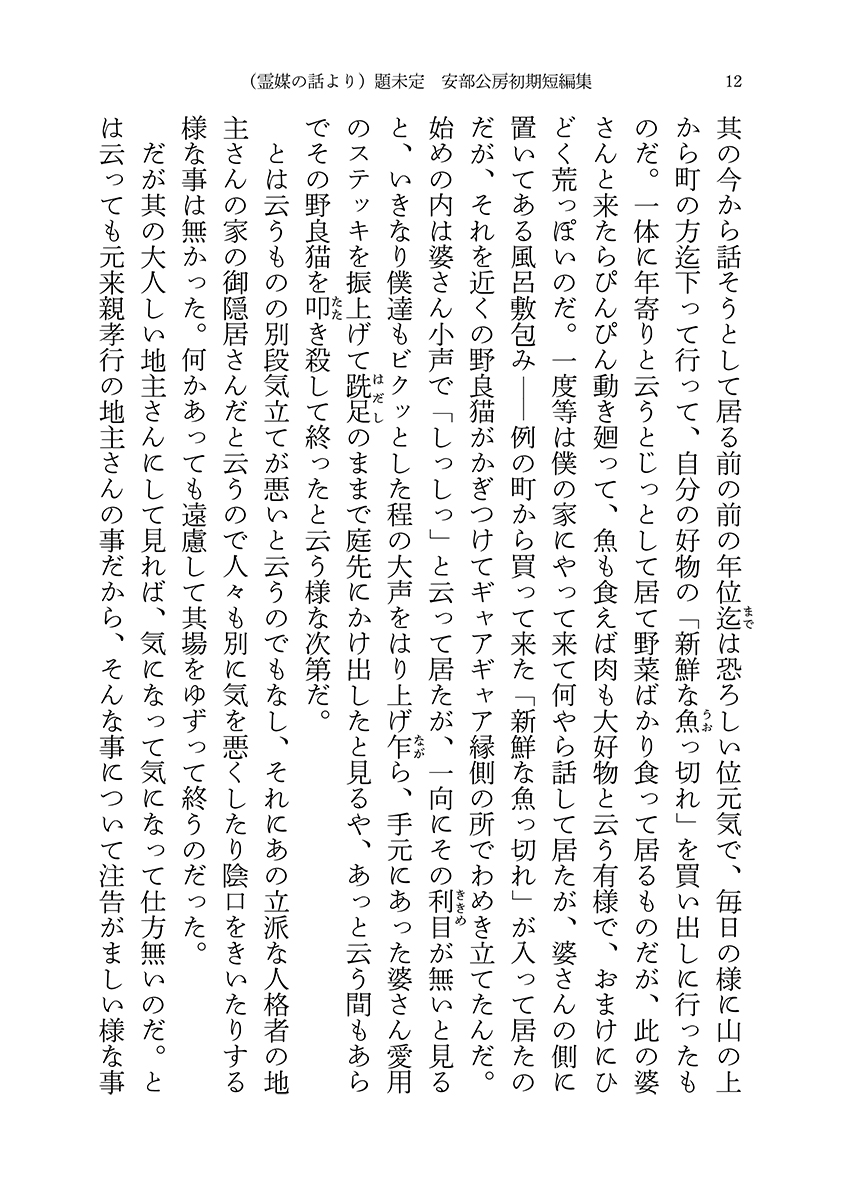 （霊媒の話より）題未定　安部公房初期短編集
12
其の今から話そうとして居る前の前の年位迄は恐ろしい位元気で、毎日の様に山の上
から町の方迄下って行って、自分の好物の「新鮮な魚っ切れ」を買い出しに行ったも
のだ。一体に年寄りと云うとじっとして居て野菜ばかり食って居るものだが、此の婆
さんと来たらぴんぴん動き廻って、魚も食えば肉も大好物と云う有様で、おまけにひ
どく荒っぽいのだ。一度等は僕の家にやって来て何やら話して居たが、婆さんの側に
置いてある風呂敷包み――例の町から買って来た「新鮮な魚っ切れ」が入って居たの
だが、それを近くの野良猫がかぎつけてギャアギャア縁側の所でわめき立てたんだ。
始めの内は婆さん小声で「しっしっ」と云って居たが、一向にその利目が無いと見る
と、いきなり僕達もビクッとした程の大声をはり上げ乍ら、手元にあった婆さん愛用
のステッキを振上げて跣足のままで庭先にかけ出したと見るや、あっと云う間もあら
でその野良猫を叩き殺して終ったと云う様な次第だ。
　とは云うものの別段気立てが悪いと云うのでもなし、それにあの立派な人格者の地
主さんの家の御隠居さんだと云うので人々も別に気を悪くしたり陰口をきいたりする
様な事は無かった。何かあっても遠慮して其場をゆずって終うのだった。
　だが其の大人しい地主さんにして見れば、気になって気になって仕方無いのだ。と
は云っても元来親孝行の地主さんの事だから、そんな事について注告がましい様な事
まで
うお
ききめ
なが
はだし
たた